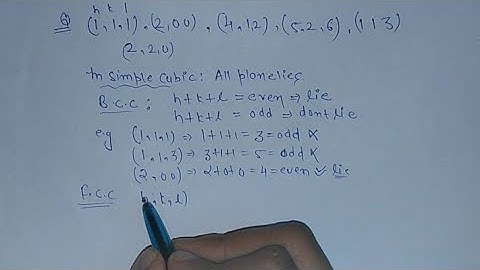 h k l
Q (1,1,1), (2,00), (4,12), (5,2,6), (113)
(2,2,0)
In Simple Cubic: All plane lies
B.C.C: h+k+l = even ⇒ lie
h+k+l = odd ⇒ dont lie
e.g (1,1,1) ⇒ 1+1+1 = 3 = odd ×
(1,1,3) ⇒ 3+1+1 = 5 = odd ×
(2,00) ⇒ 2+0+0 = 4 = even ✓ lie
F.C.C h,k,l)